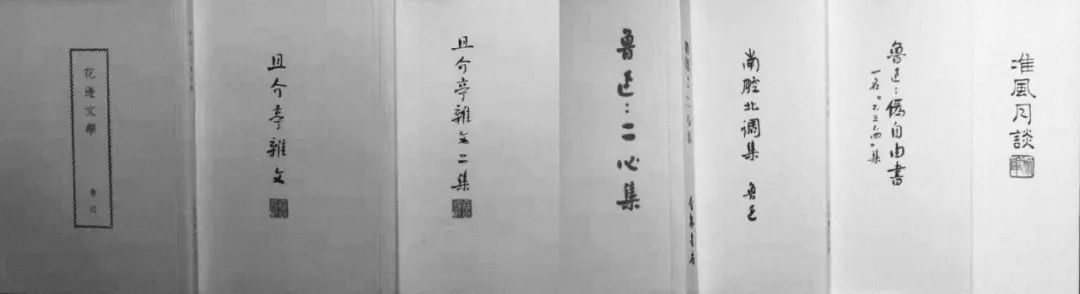 花邊文學
魯迅
且介亭雜文
且介亭雜文二集
魯迅:二心集
南腔北調集 魯迅
魯迅:偽自由書
一名“不三不四”集
准風月談